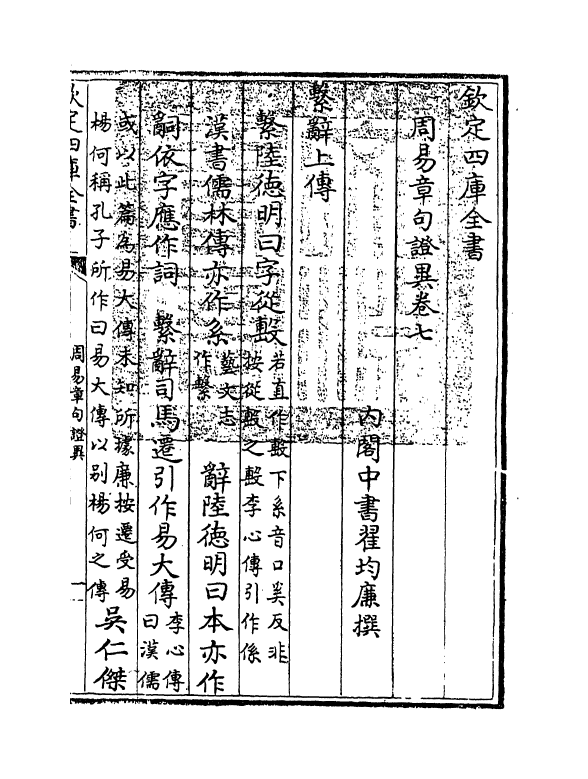 欽定四庫全書
周易章句證異卷七
内閣中書翟均廉撰
繫辭上傳
繫陸德明曰字從毄若直作毄下系音口奚反非
按從毄之毄李心傳引作係
漢書儒林傳亦作系藝文志
作繫
辭陸德明曰本亦作
嗣依字應作詞
繫辭司馬遷引作易大傳李心傳
曰漢儒
或以此篇為易大傳未知所據廉按遷受易
楊何稱孔子所作曰易大傳以别楊何之傳
吳仁傑
欽定四庫全書
周易章句證異
一